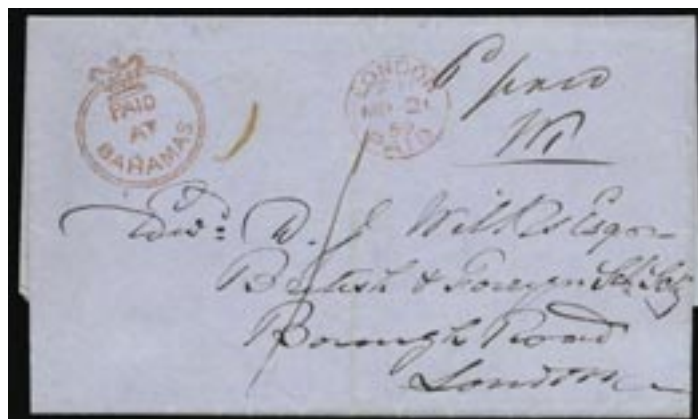 PAID
AT
BAHAMAS
LONDON
21
57
PAID
paid
D. J Wilks Esqr
British & Foreign Schl Soc
Borough Road
London